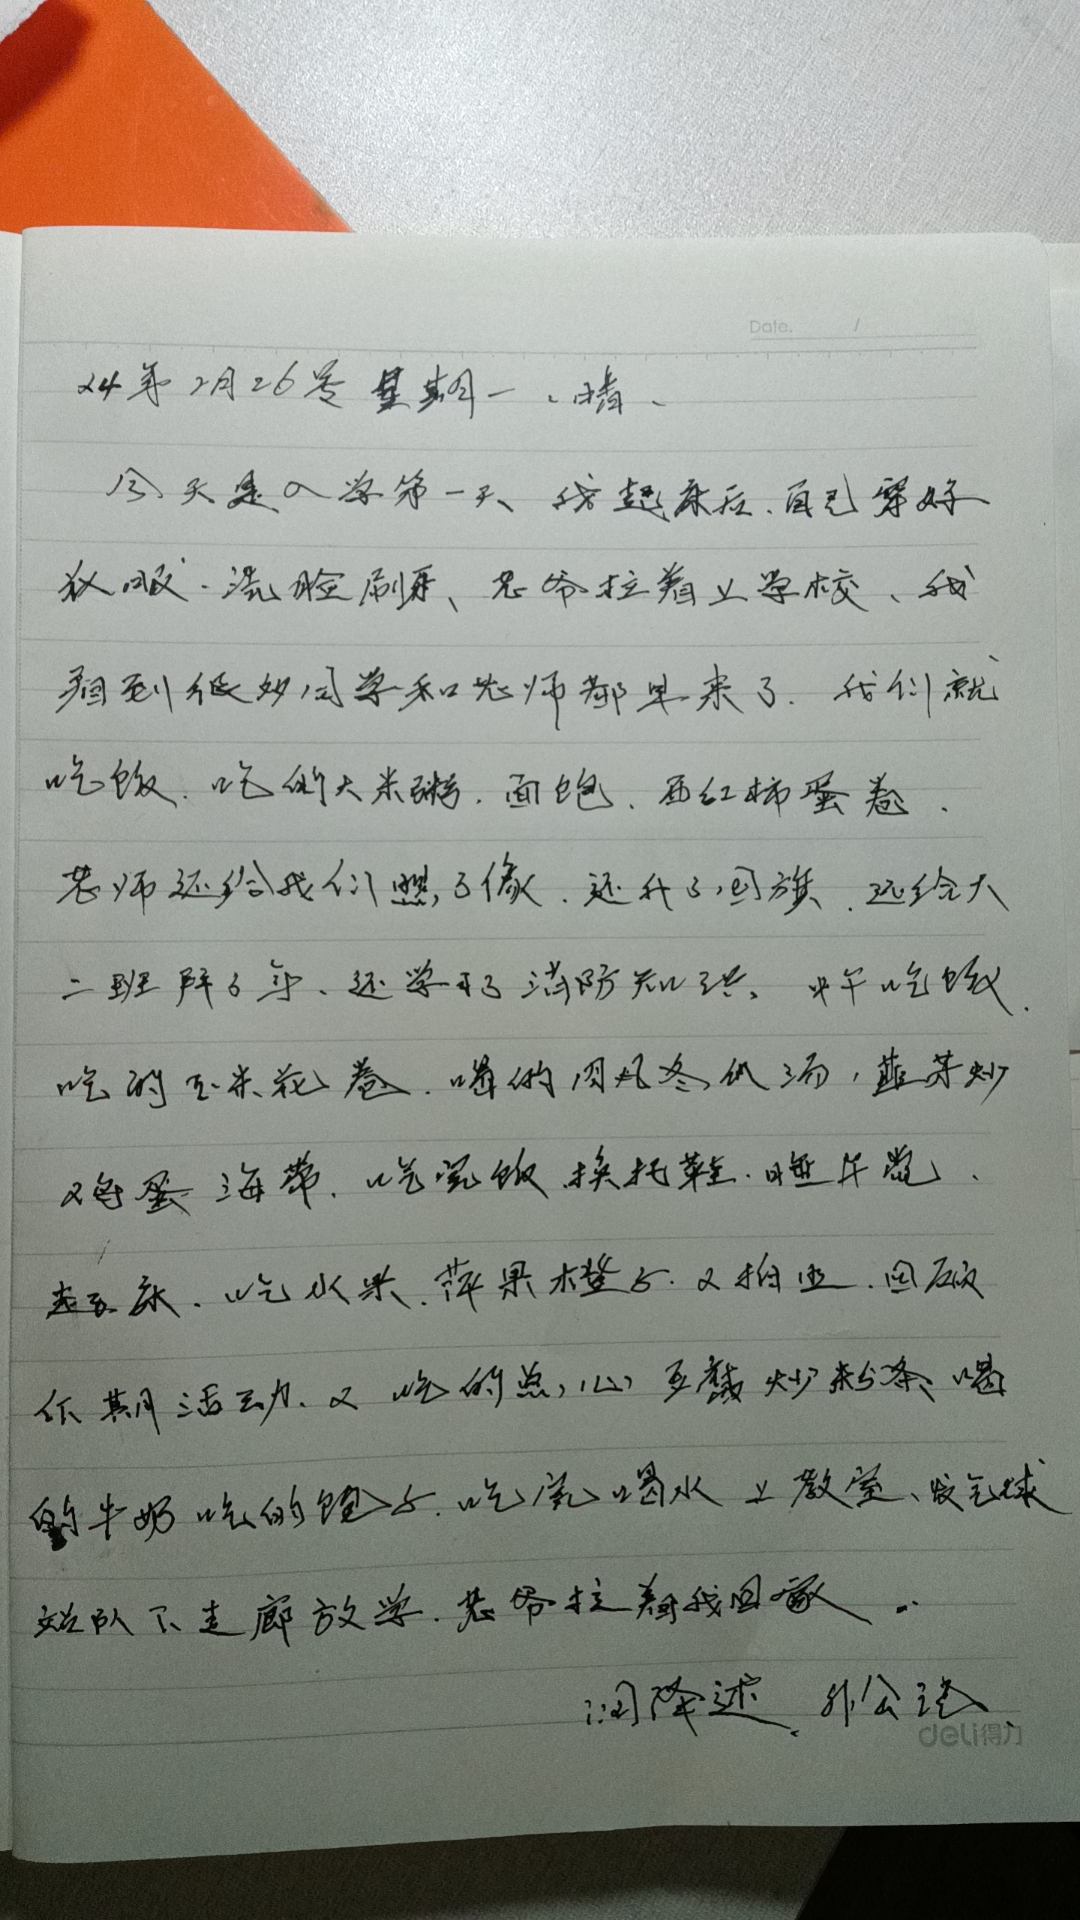 Date. /
24年2月26号 星期一、晴、
今天是入学第一天、我起床后、自己穿好
衣服、洗脸刷牙、老爷拉着上学校、我
看到很多同学和老师都早来了、我们就
吃饭、吃的大米粥、面包、西红柿蛋卷、
老师还给我们照了像、还升了国旗、还给大
二班拜了年、还学习了消防知识、中午吃饭、
吃的玉米花卷、喝的肉丸冬瓜汤，韭芽炒
鸡蛋海带、吃完饭换拖鞋、睡午觉、
起床、吃水果、苹果橙子、又拍照、回顾
假期活动、又吃的点心，豆腐炒粉条、喝
的牛奶吃的包子、吃完喝水上教室、发气球
站队下走廊放学、老爷拉着我回家。
述、外公记、
deli得力